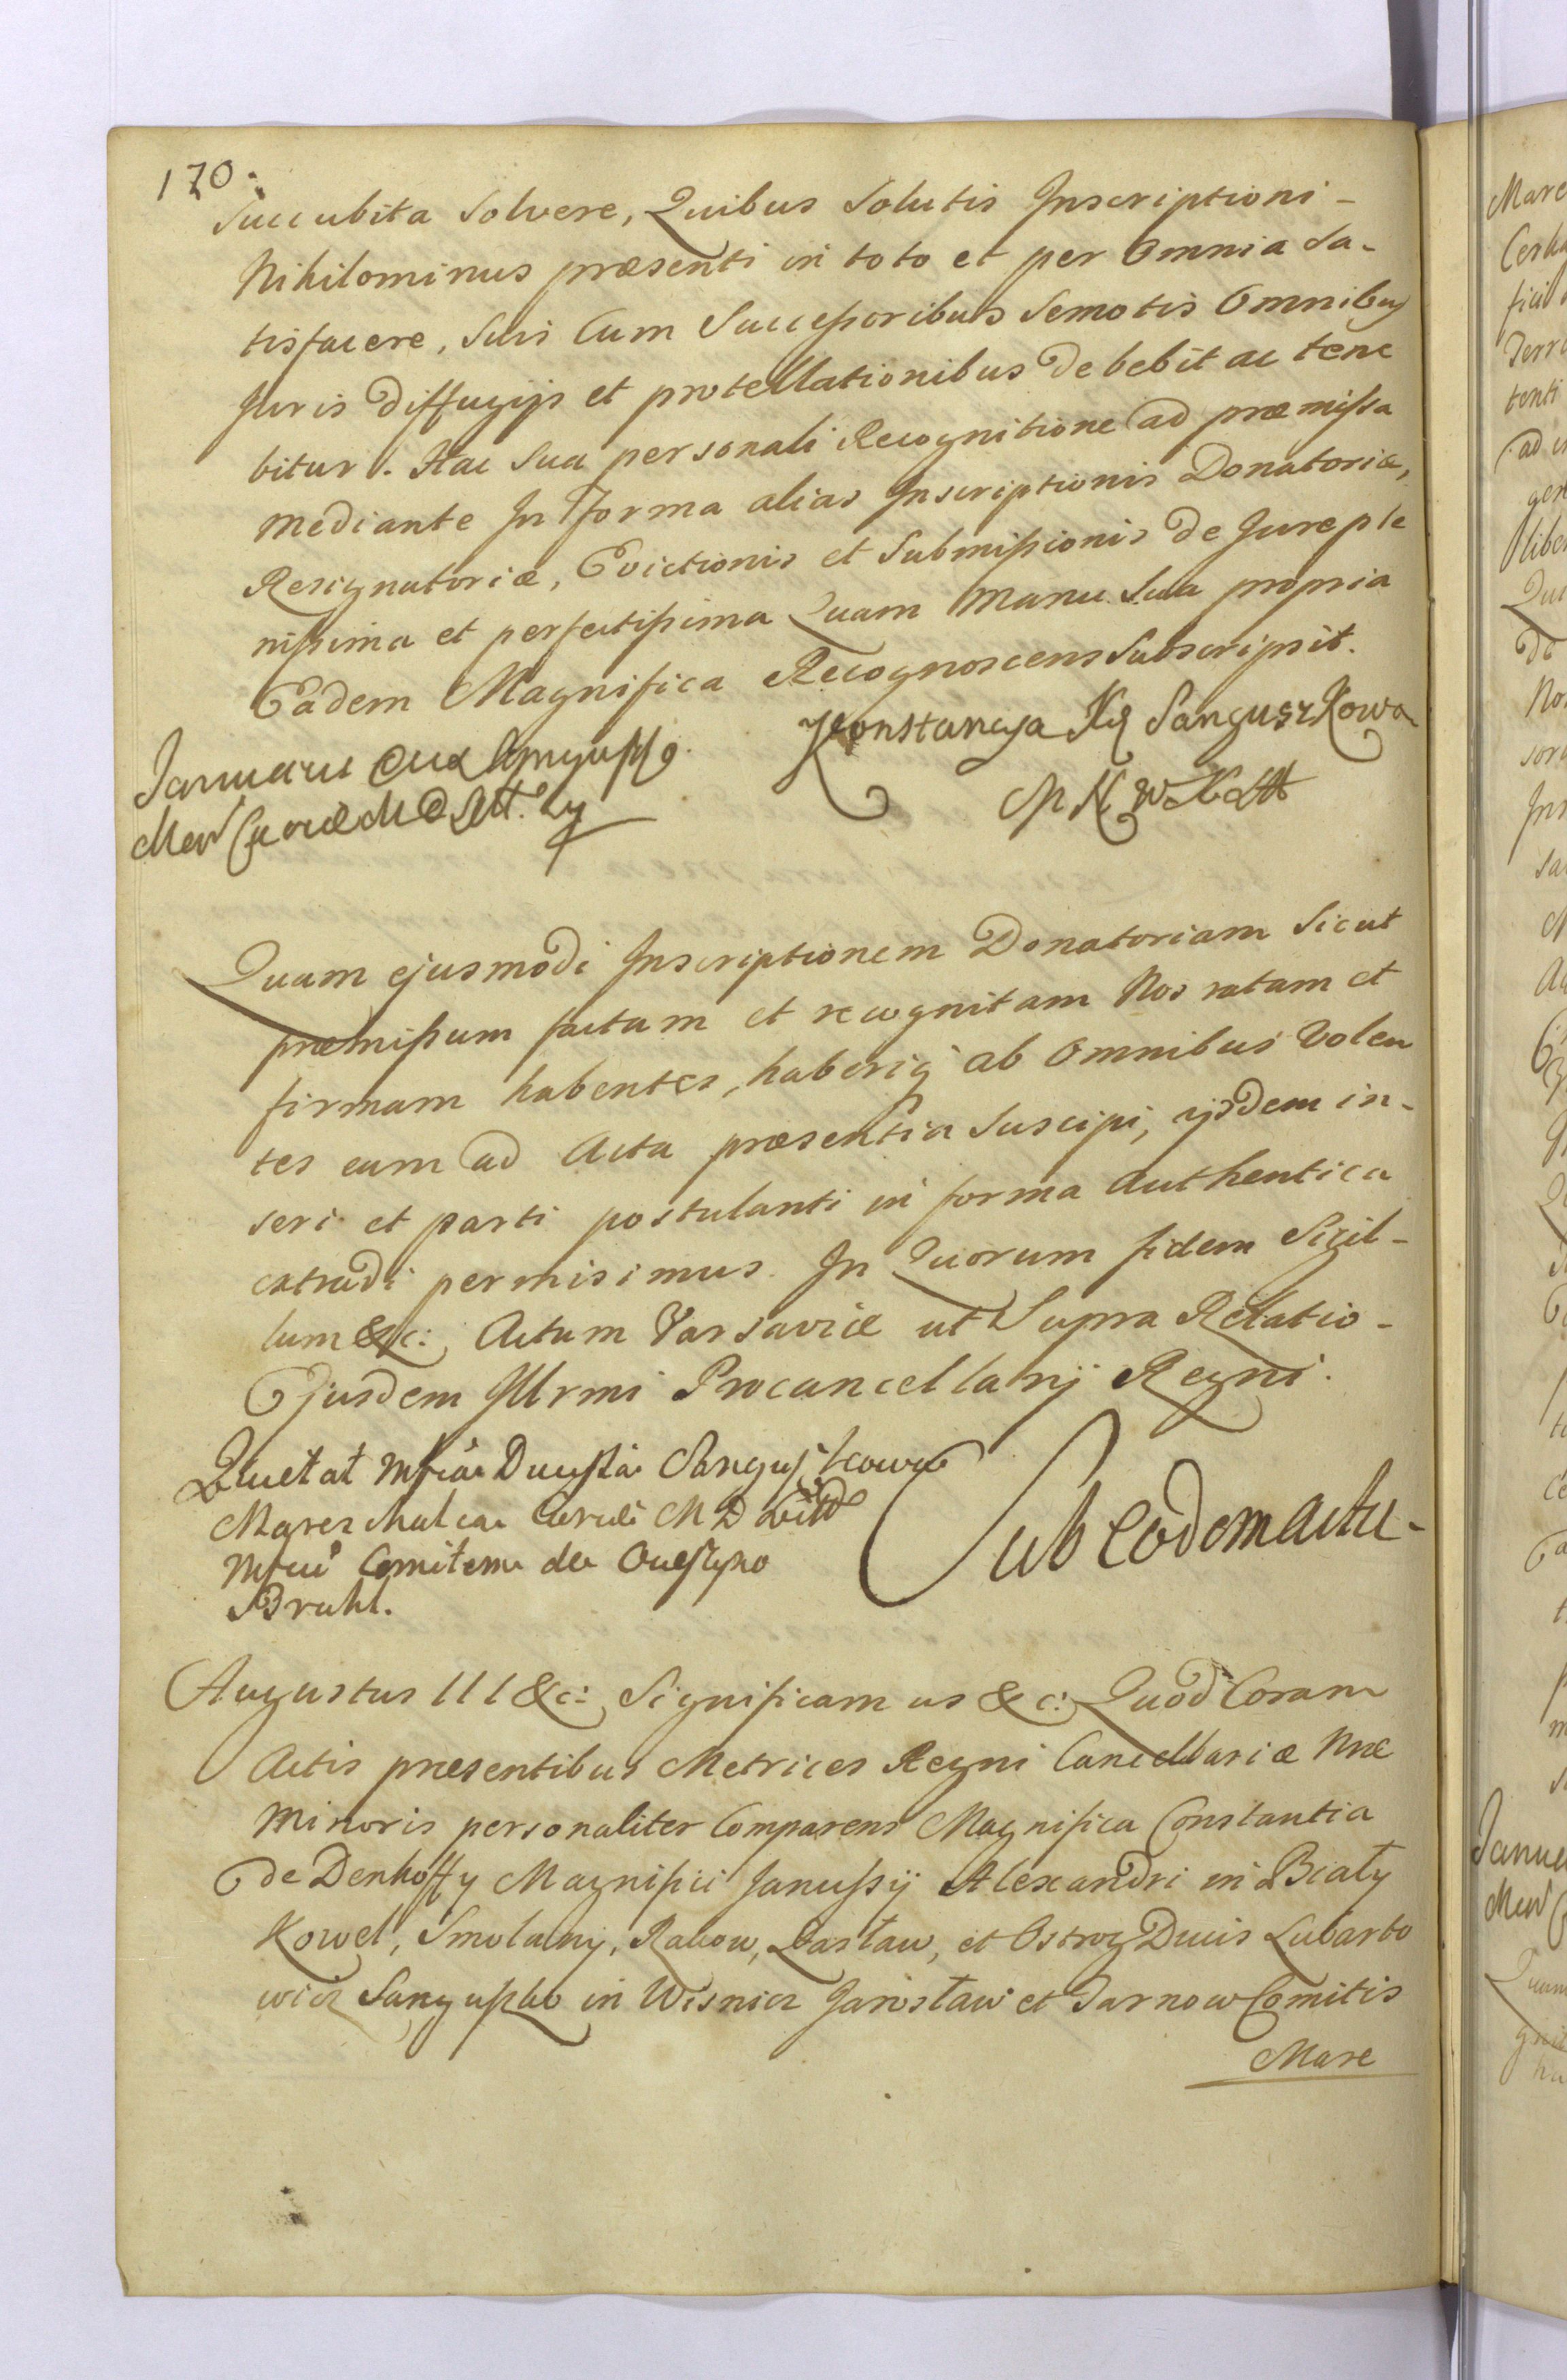 170.
Succubita Solvere, Quibus Solutis Inscriptioni-
Nihilominus præsenti in toto et per Omnia Sa-
tisfacere, Suis Cum Successoribus Semotis Omnibus
Juris Diffugijs et protellationibus Debebit ac tene
bitur. Hac Sua personali Recognitione ad præmissa
mediante In Forma alias Inscriptionis Donatoriæ,
Resignatoriæ, Evictionis et Submissionis de Jure ple
nissima et perfectissima Quam Manu Sua propria
Eadem Magnifica Recognoscens Subscripsit.
Konstancya Xż Sanguszkowa
M N W X Litt
Quam ejusmodi Inscriptionem Donatoriam Sicut
præmissum factam et recognitam Nos ratam et
firmam habentes, haberiq ab Omnibus Volen
tes eam ad Acta præsentia Suscipi, ijsdem in-
seri et parti postulanti in forma Authentica
extradi permisimus. In Quorum fidem Sigil-
lum &c: Actum Varsaviæ ut Supra Relatio-
Ejusdem Illrmi Procancellarij Regni.
Quietat Mfica Ducissa Sanguszkowa
Mareschalca Curiæ M D Litt
Mficu Comitem de Oueszyno
Bruhl.
Sub Eodem Actu-
Augustus III &c: Significamus &c: Quod Coram
Actis præsentibus Metrices Regni Cancellariæ Nræ
Minoris personaliter Comparens Magnifica Constantia
de Denhoffy Magnifici Janussij Alexandri in Biały
Kowel, Smolany, Rakow, Zasław, et Ostrog Ducis Lubarto
wicz Sanguszko in Wisnicz Jarosław et Tarnow Comitis
Mare